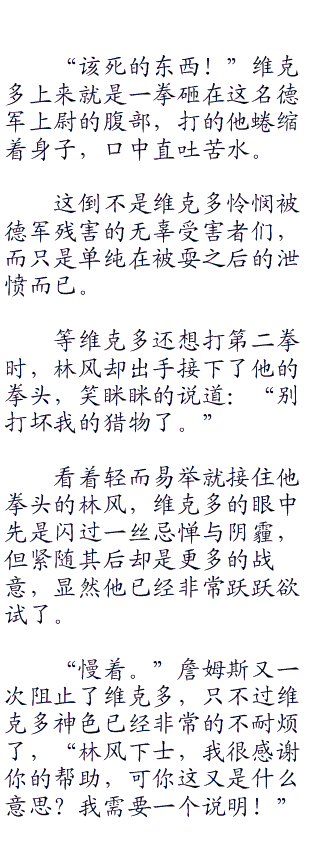 “该死的东西！”维克
多上来就是一拳砸在这名德
军上尉的腹部，打的他蜷缩
着身子，口中直吐苦水。
这倒不是维克多怜悯被
德军残害的无辜受害者们，
而只是单纯在被耍之后的泄
愤而已。
等维克多还想打第二拳
时，林风却出手接下了他的
拳头，笑眯眯的说道：“别
打坏我的猎物了。”
看着轻而易举就接住他
拳头的林风，维克多的眼中
先是闪过一丝忌惮与阴霾，
但紧随其后却是更多的战
意，显然他已经非常跃跃欲
试了。
“慢着。”詹姆斯又一
次阻止了维克多，只不过维
克多神色已经非常的不耐烦
了，“林风下士，我很感谢
你的帮助，可你这又是什么
意思？我需要一个说明！”